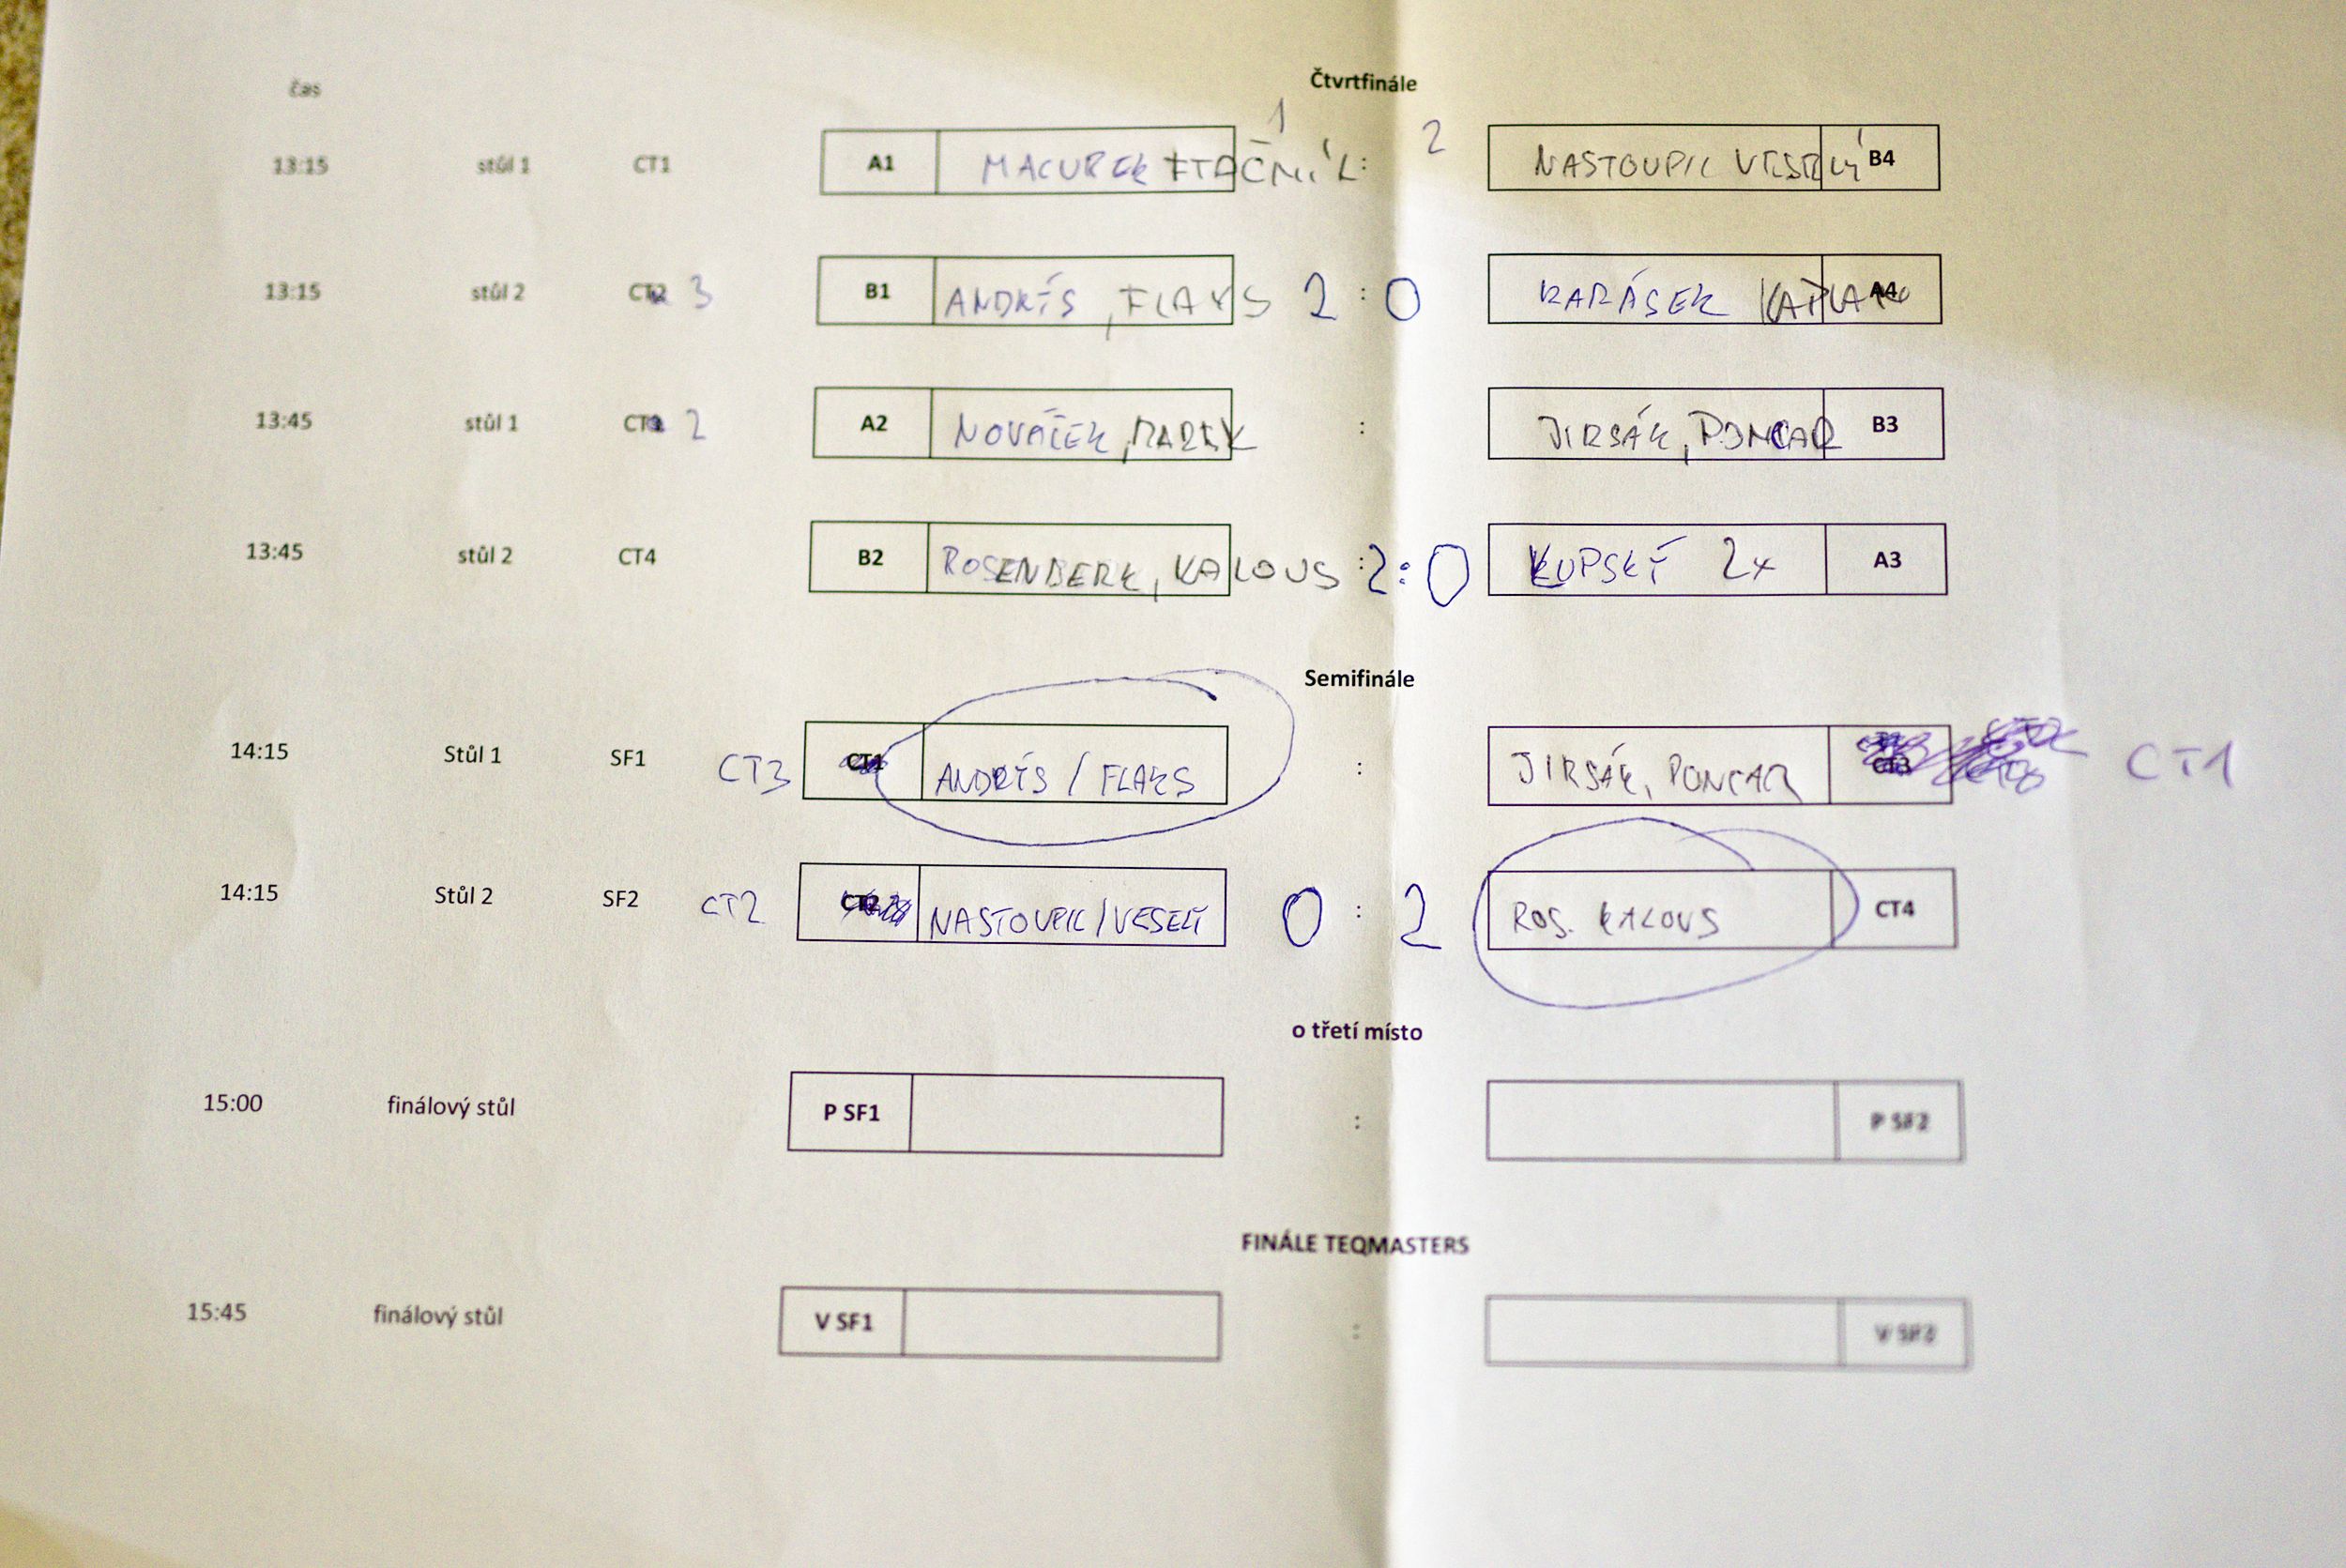 čas Čtvrtfinále
13:15 stůl 1 CT1 A1 MACUREK PTÁČNÍK 1 : 2 NASTOUPIL VESELÝ B4
13:15 stůl 2 3 B1 ANDRÝS, FLAKS 2 : 0 KARÁSEK A4
13:45 stůl 1 2 A2 NOVÁČEK, MAREK : JIRSÁK, PONCAR B3
13:45 stůl 2 CT4 B2 ROSENBERK, KALOUS : 2:0 KUPSKÝ 2x A3
Semifinále
14:15 Stůl 1 SF1 CT3 CT1 ANDRÝS / FLAKS : JIRSÁK, PONCAR CT3 CT1
14:15 Stůl 2 SF2 CT2 NASTOUPIL / VESELÝ 0 : 2 ROS. KALOUS CT4
o třetí místo
15:00 finálový stůl P SF1 : P SF2
FINÁLE TEQMASTERS
15:45 finálový stůl V SF1 : V SF2